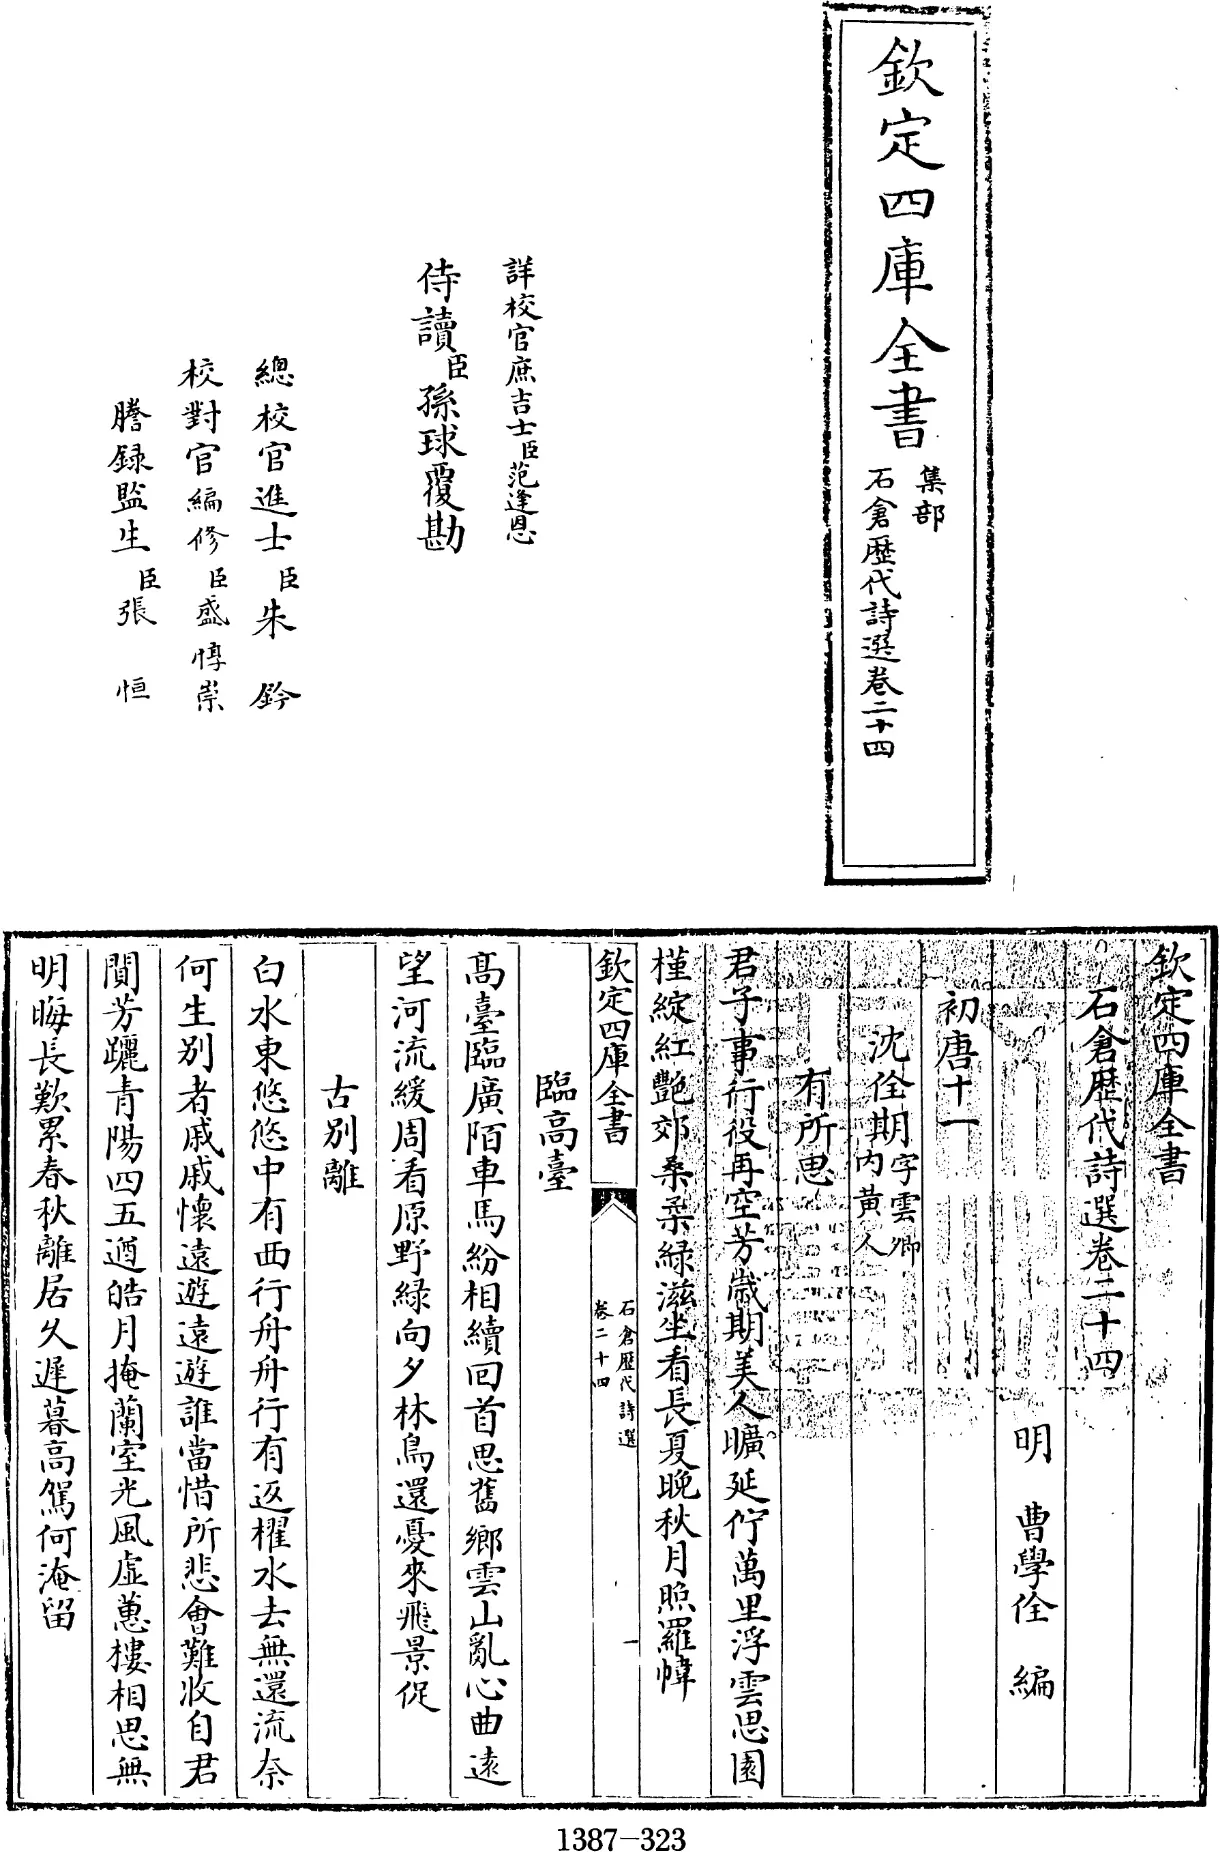 欽定四庫全書
集部
石倉歷代詩選卷二十四
詳校官庶吉士臣范逢恩
侍讀臣孫球覆勘
總校官進士臣朱鈐
校對官編修臣盛惇崇
謄録監生臣張恒
欽定四庫全書
石倉歷代詩選卷二十四
明 曹學佺 編
初唐十一
沈佺期字雲卿內黄人
有所思
君子事行役再空芳歲期美人曠延佇萬里浮雲思園
槿綻紅艷郊桑柔緑滋坐看長夏晚秋月照羅幃
欽定四庫全書
石倉歷代詩選
卷二十四
一
臨高臺
高臺臨廣陌車馬紛相續回首思舊鄉雲山亂心曲遠
望河流緩周看原野緑向夕林鳥還憂來飛景促
古別離
白水東悠悠中有西行舟舟行有返櫂水去無還流奈
何生別者戚戚懷遠遊遠遊誰當惜所悲會難收自君
間芳躧青陽四五遒皓月掩蘭室光風虛蕙樓相思無
明晦長歎累春秋離居久遲暮高駕何淹留
1387-323